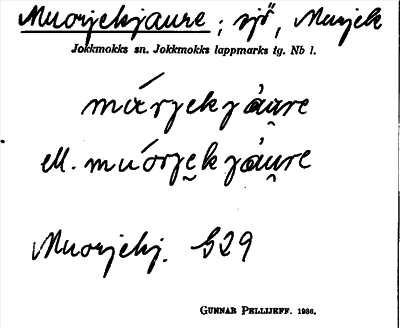 Muorjekjaure; sjö, Murjek
Jokkmokks sn. Jokkmokks lappmarks tg. Nb l.
márjekjáu̯re
ell. múorje̮kjáu̯re
Muorjekj. G29
GUNNAR PELLIJEFF. 1986.